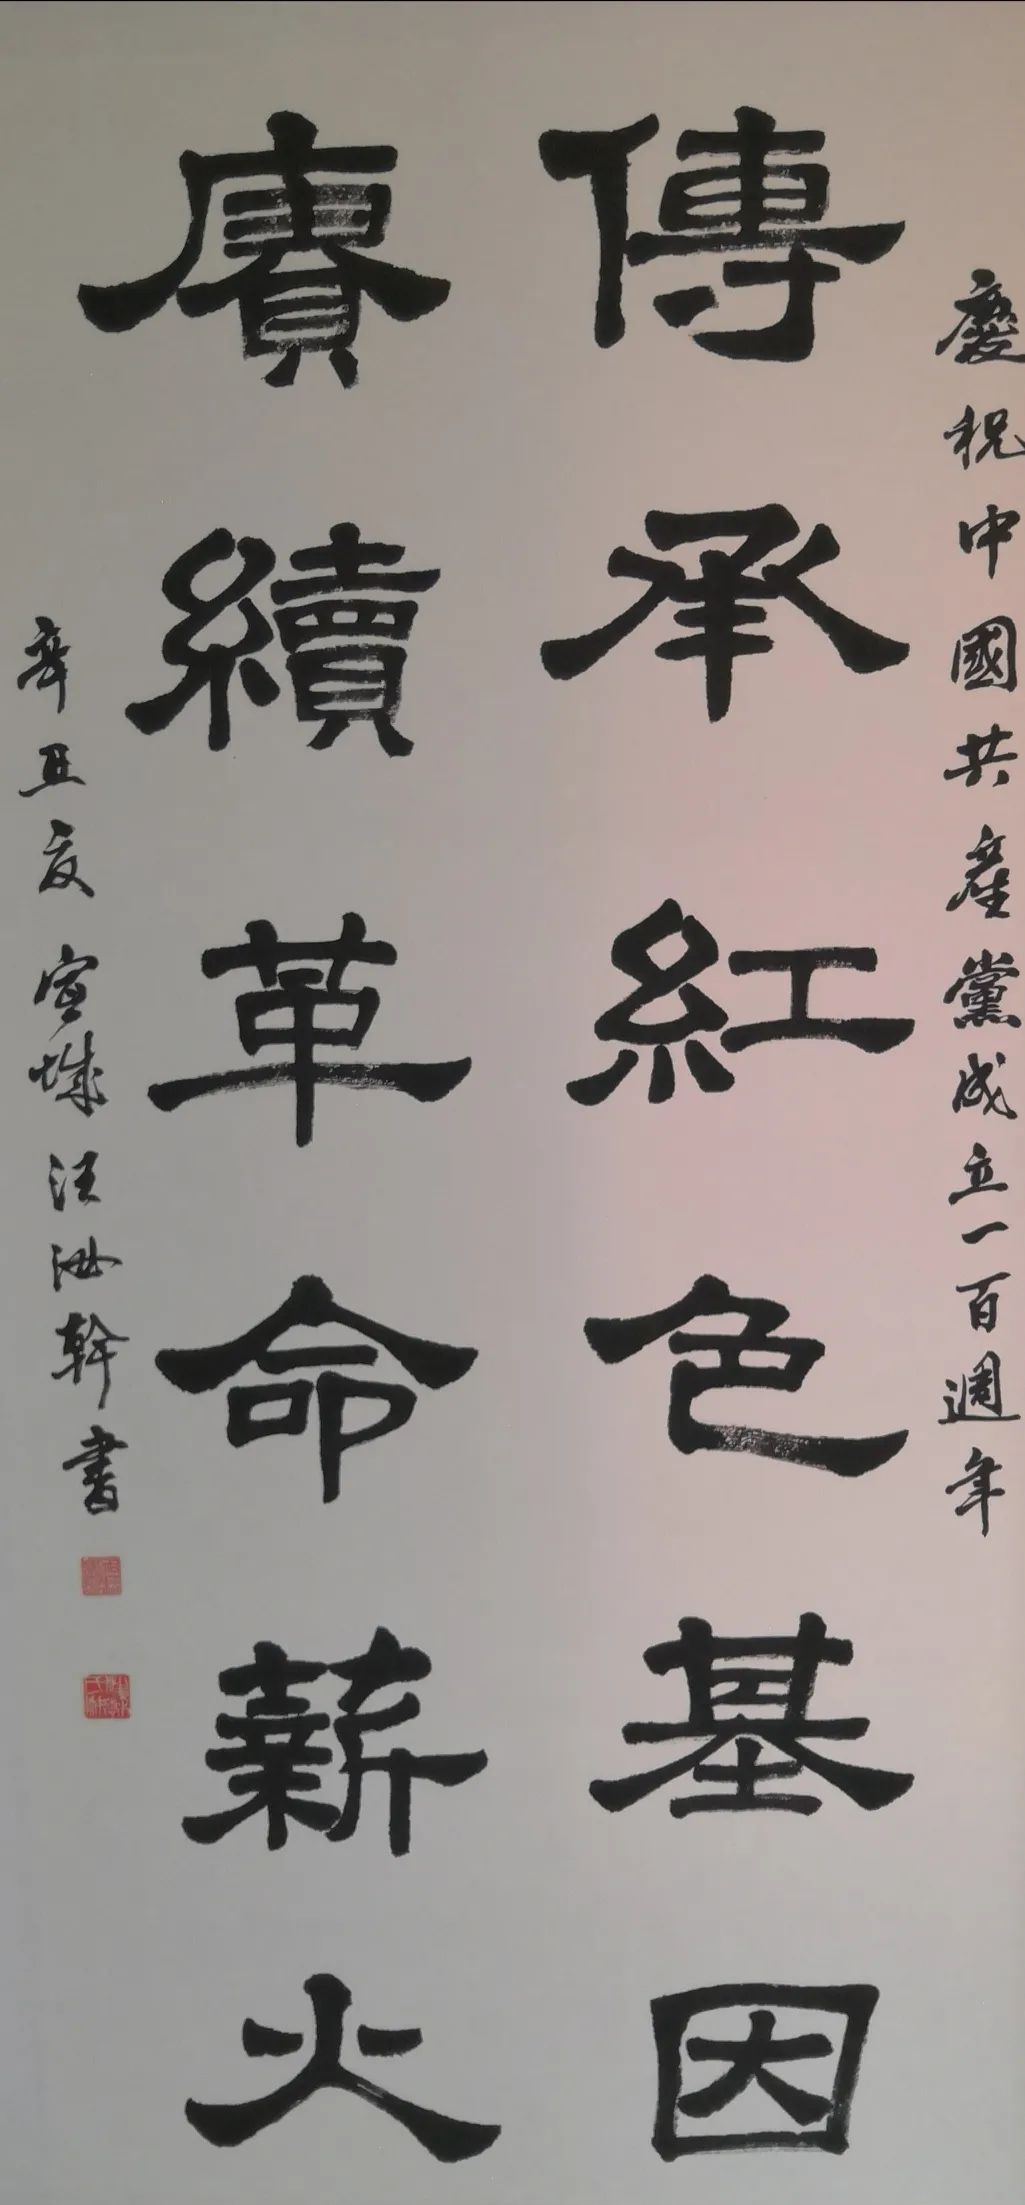 慶祝中國共產黨成立一百週年
傳承紅色基因
賡續革命薪火
辛丑夏宣城汪汝幹書